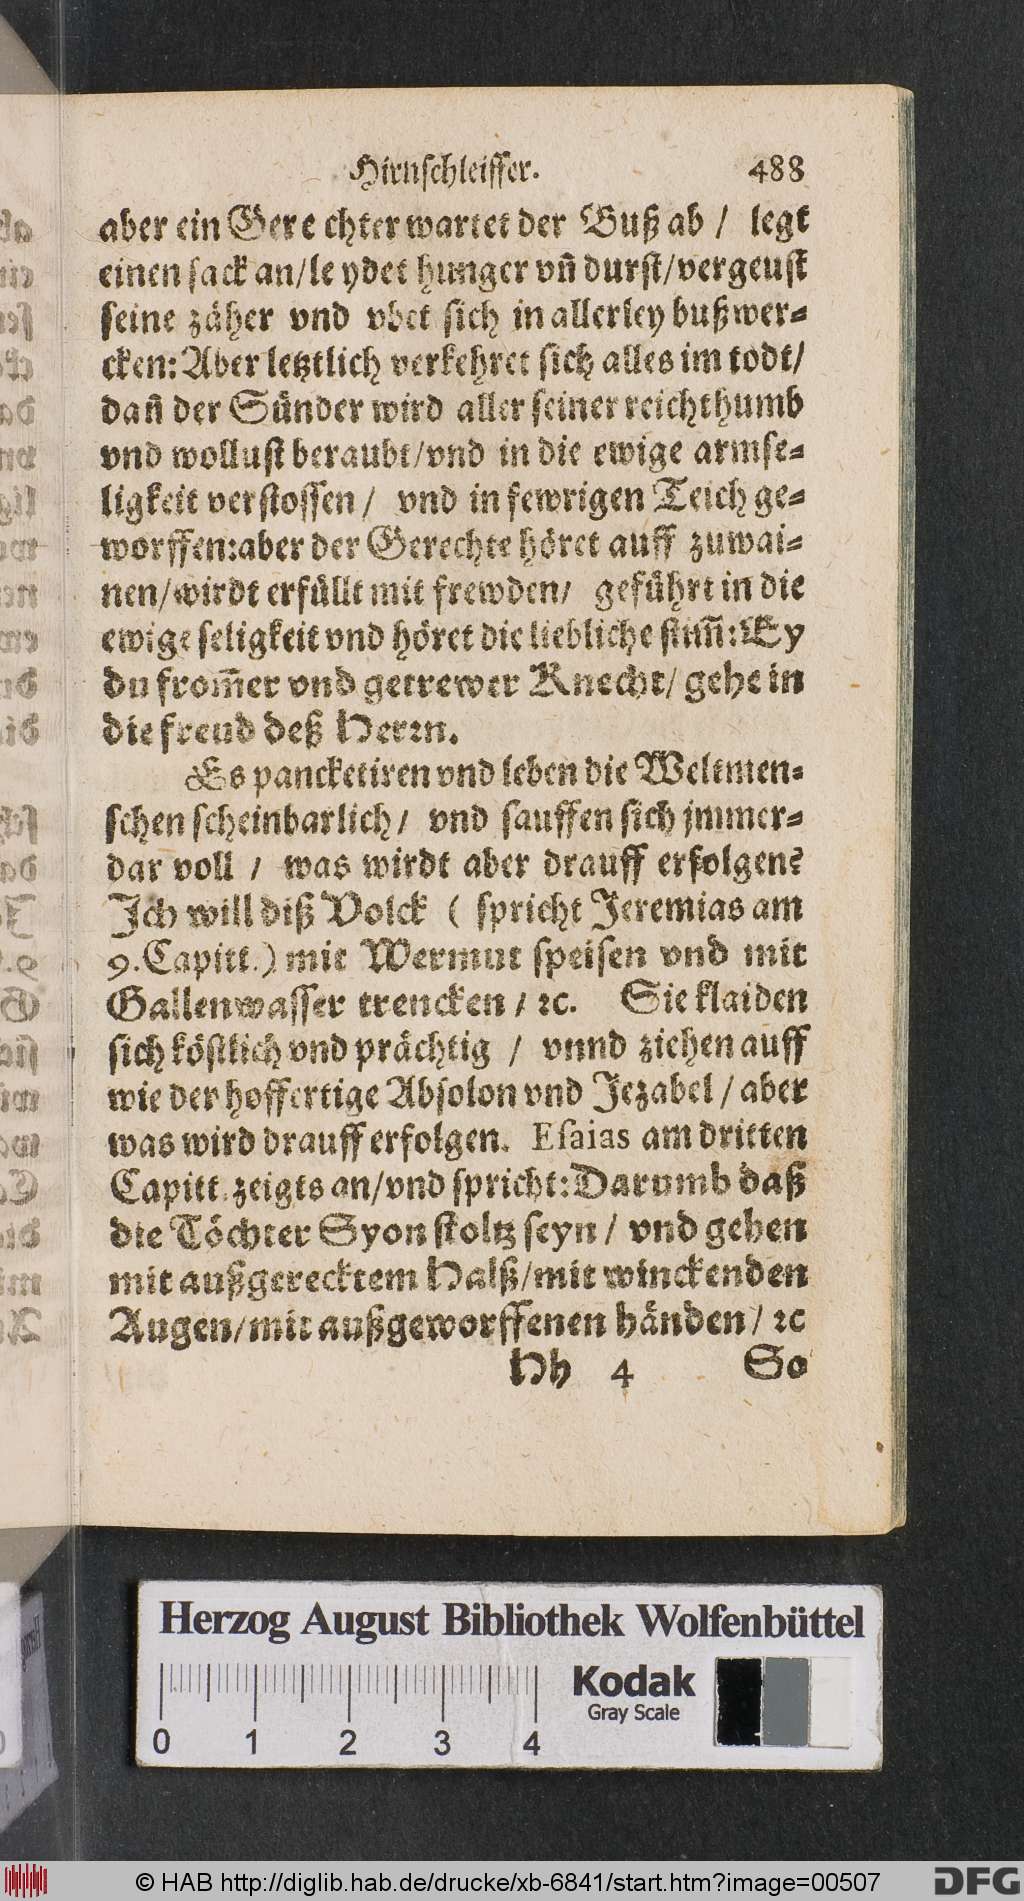 Hirnschleiffer. 488
aber ein Gerechter wartet der Buß ab / legt
einen sack an/leydet hunger vñ durst/vergeust
seine zäher vnd vbet sich in allerley bußwer-
cken: Aber letztlich verkehret sichs alles im todt/
dañ der Sünder wird aller seiner reichthumb
vnd wollust beraubt/vnd in die ewige armse-
ligkeit verstossen / vnd in fewrigen Teich ge-
worffen:aber der Gerechte höret auff zuwai-
nen/wirdt erfüllt mit frewden/ geführt in die
ewige seligkeit vnd höret die liebliche stim̃: Ey
du from̃er vnd getrewer Knecht/ gehe in
die freud deß Herꝛn.
Es pancketiren vnd leben die Weltmen-
schen scheinbarlich/ vnd sauffen sich jmmer-
dar voll / was wirdt aber drauff erfolgen?
Ich will diß Volck ( spricht Jeremias am
9. Capitt.) mit Wermut speisen vnd mit
Gallenwasser trencken / ꝛc. Sie klaiden
sich köstlich vnd prächtig / vnnd ziehen auff
wie der hoffertige Absolon vnd Jezabel / aber
was wird drauff erfolgen. Esaias am dritten
Capitt. zeigts an/vnd spricht: Darumb daß
die Töchter Syon stoltz seyn / vnd gehen
mit außgerecktem Halß/mit winckenden
Augen/mit außgeworffenen händen/ ꝛc
Hh 4 So
Herzog August Bibliothek Wolfenbüttel
Kodak
Gray Scale
0 1 2 3 4
© HAB http://diglib.hab.de/drucke/xb-6841/start.htm?image=00507
DFG